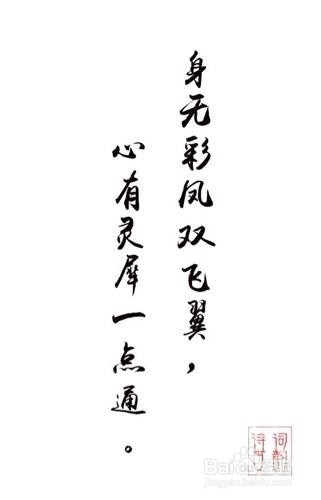 身无彩凤双飞翼，
心有灵犀一点通。
Baidu经验
jingyan.baidu.com